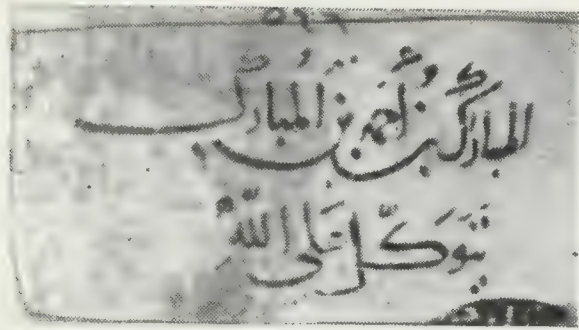 المبارك بن أحمد بن المبارك
يتوكل على الله